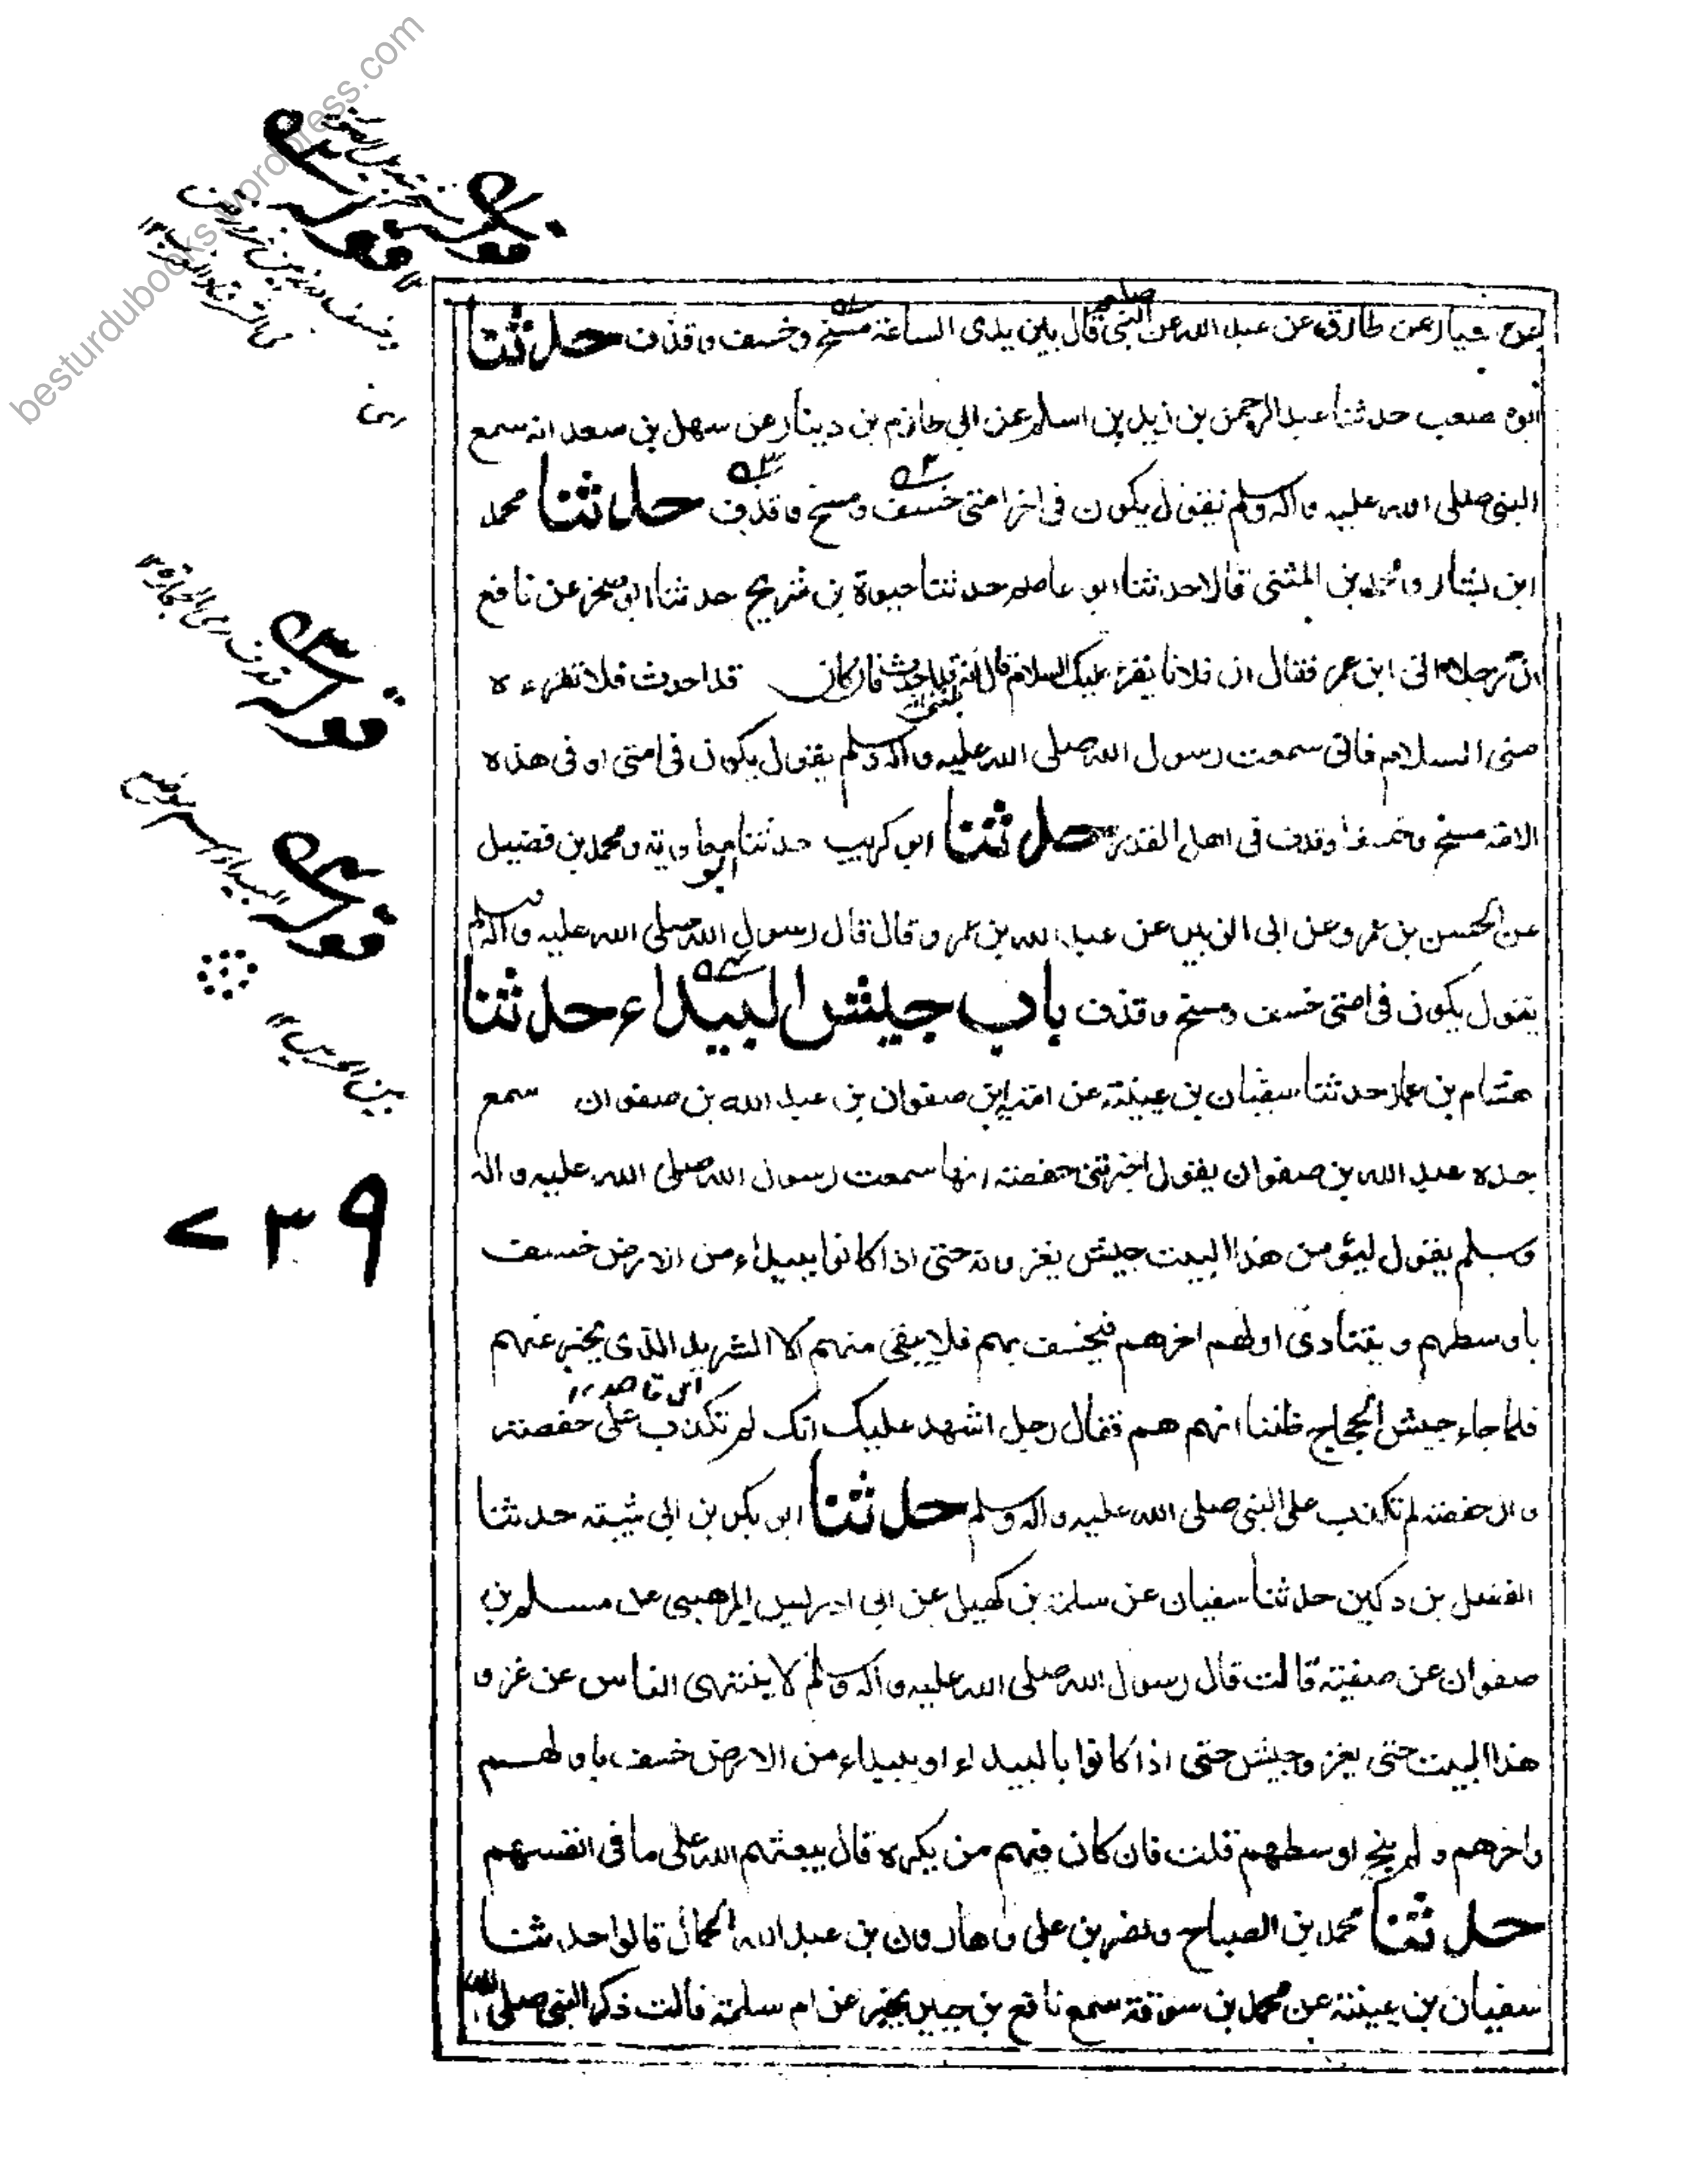 عن سيار عن طارق عن عبد الله عن النبي صلعم قال بين يدى الساعة مسخ وخسف وقذف حدثنا
ابو مصعب حدثنا عبد الرحمن بن زيد بن اسلم عن ابى حازم بن دينار عن سهل بن سعد انه سمع
النبى صلى الله عليه واله وسلم يقول يكون فى اخر امتى خسف ومسخ وقذف حدثنا محمد
ابن بشار ومحمد بن المثنى قالا حدثنا ابو عاصم حدثنا حيوة بن شريح حدثنا ابو صخر عن نافع
ان رجلا اتى ابن عمر فقال ان فلانا يقرء عليك السلام قال انه بلغنى انه قد احدث فان كان قد احدث فلا تقرءه
منى السلام فانى سمعت رسول الله صلى الله عليه واله وسلم يقول يكون فى امتى او فى هذه
الامة مسخ وخسف وقذف فى اهل القدر حدثنا ابو كريب حدثنا ابو معاوية ومحمد بن فضيل
عن الحسن بن عمرو عن ابى الزبير عن عبد الله بن عمرو قال قال رسول الله صلى الله عليه واله وسلم
يقول يكون فى امتى خسف ومسخ وقذف باب جيش البيداء حدثنا
هشام بن عمار حدثنا سفيان بن عيينة عن امية بن صفوان بن عبد الله بن صفوان سمع
جده عبد الله بن صفوان يقول اخبرتنى حفصة انها سمعت رسول الله صلى الله عليه واله
وسلم يقول ليؤمن هذا البيت جيش يغزونه حتى اذا كانوا ببيداء من الارض خسف
باوسطهم ويتنادى اولهم اخرهم فيخسف بهم فلا يبقى منهم الا الشريد الذى يخبر عنهم
فلما جاء جيش الحجاج ظننا انهم هم فقال رجل اشهد عليك انك لم تكذب على حفصة
وان حفصة لم تكذب على النبى صلى الله عليه واله وسلم حدثنا ابو بكر بن ابى شيبة حدثنا
الفضل بن دكين حدثنا سفيان عن سلمة بن كهيل عن ابى ادريس المرهبى عن مسلم بن
صفوان عن صفية قالت قال رسول الله صلى الله عليه واله وسلم لا ينتهى الناس عن غزو
هذا البيت حتى يغزو جيش حتى اذا كانوا بالبيداء او ببيداء من الارض خسف باولهم
واخرهم ولم ينج اوسطهم قلت فان كان فيهم من يكره قال يبعثهم الله على ما فى انفسهم
حدثنا محمد بن الصباح ونصر بن على وهارون بن عبد الله الحمال قالوا حدثنا
سفيان بن عيينة عن محمد بن سوقة سمع نافع بن جبير يخبر عن ام سلمة قالت ذكر النبى صلى الله
قوله
قوله
قوله
قوله
بين الحرمين ١٢
٧٣٩
besturdubooks.wordpress.com